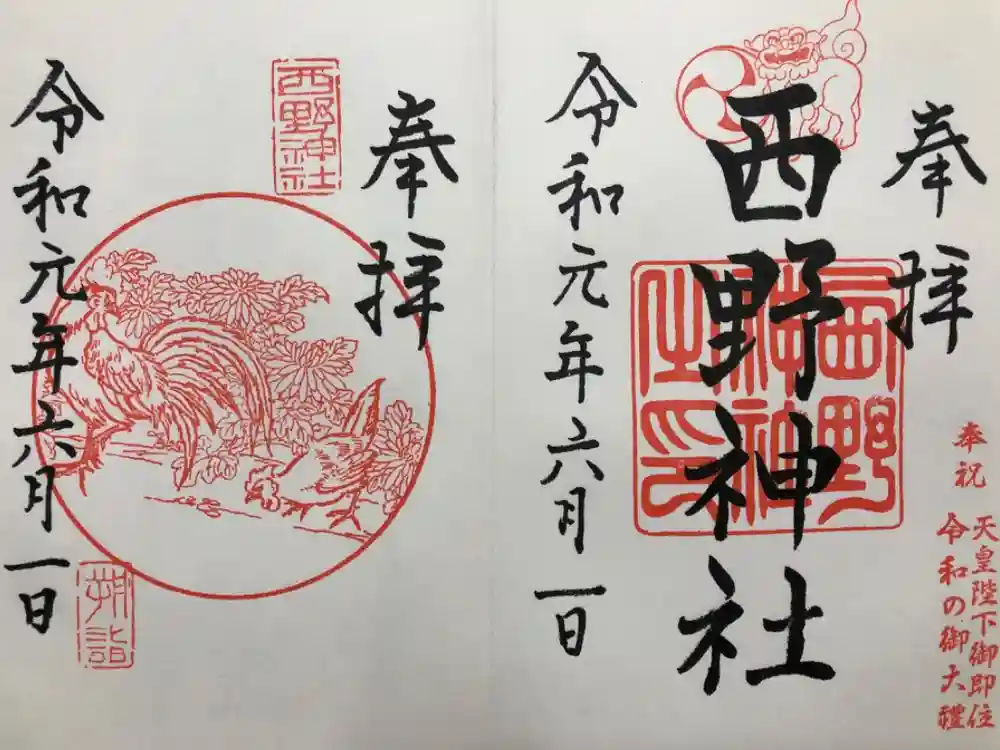 奉祝 天皇陛下御即位
令和の御大禮
奉拝
西野神社
西野神社之印
令和元年六月一日
奉拝
西野神社
令和元年六月一日
朔詣